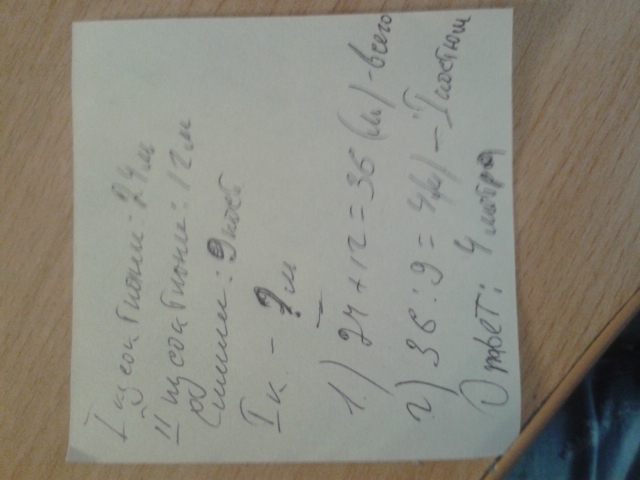 I кусок ткани: 24 м
II кусок ткани: 12 м
Сшили: 9 кост
I к. - ? м
1) 24 + 12 = 36 (м) - всего
2) 36 : 9 = 4 (м) - I костюм
Ответ: 4 метра